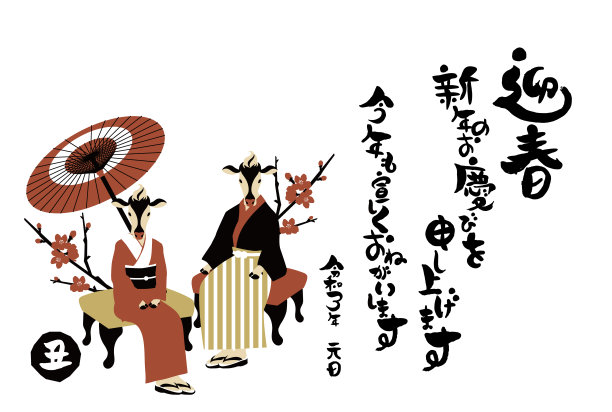 迎春
新年のお慶びを
申し上げます
今年も宜しく
おねがいします
令和3年 元日
丑